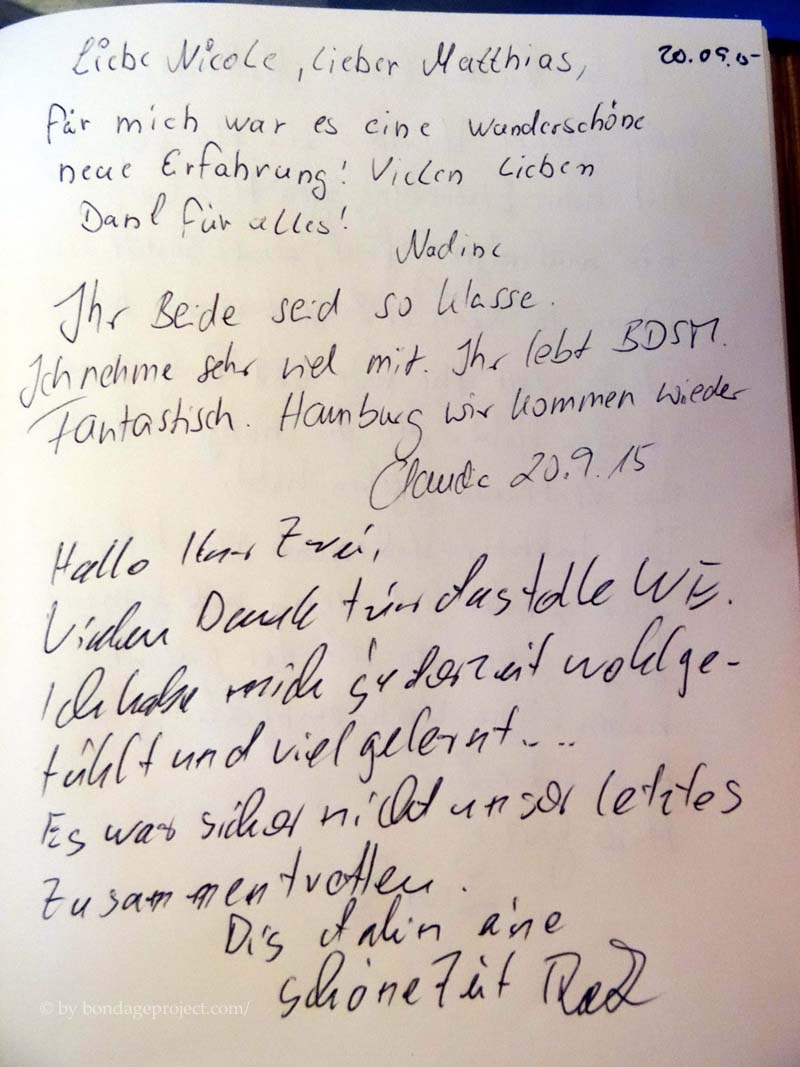 20.09.15
Liebe Nicole, lieber Matthias,
für mich war es eine wunderschöne
neue Erfahrung! Vielen lieben
Dank für alles!
Nadine
Ihr Beide seid so klasse.
Ich nehme sehr viel mit. Ihr lebt BDSM.
Fantastisch. Hamburg wir kommen wieder
Claudia 20.9.15
Hallo Ihr Zwei,
Vielen Dank für das tolle WE.
Ich habe mich jederzeit wohlge-
fühlt und viel gelernt...
Es war sicher nicht unser letztes
Zusammentreffen.
Bis dahin eine
schöne Zeit
© by bondageproject.com/